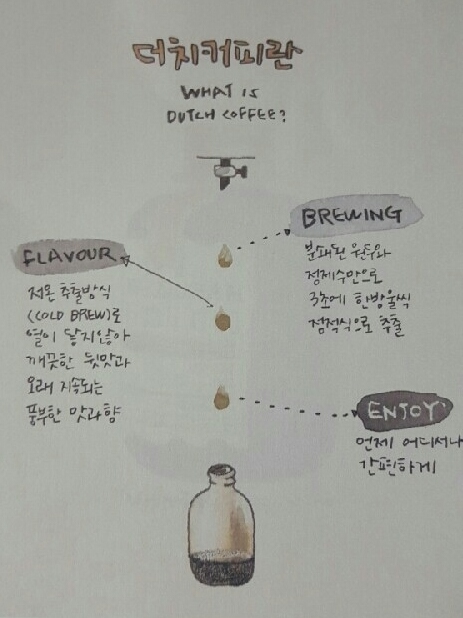 더치커피란
WHAT IS
DUTCH COFFEE?
BREWING
분쇄된 원두와
정제수만으로
3초에 한방울씩
점적식으로 추출
FLAVOUR
저온 추출방식
(COLD BREW)로
열이 닿지않아
깨끗한 뒷맛과
오래 지속되는
풍부한 맛과향
ENJOY
언제 어디서나
간편하게